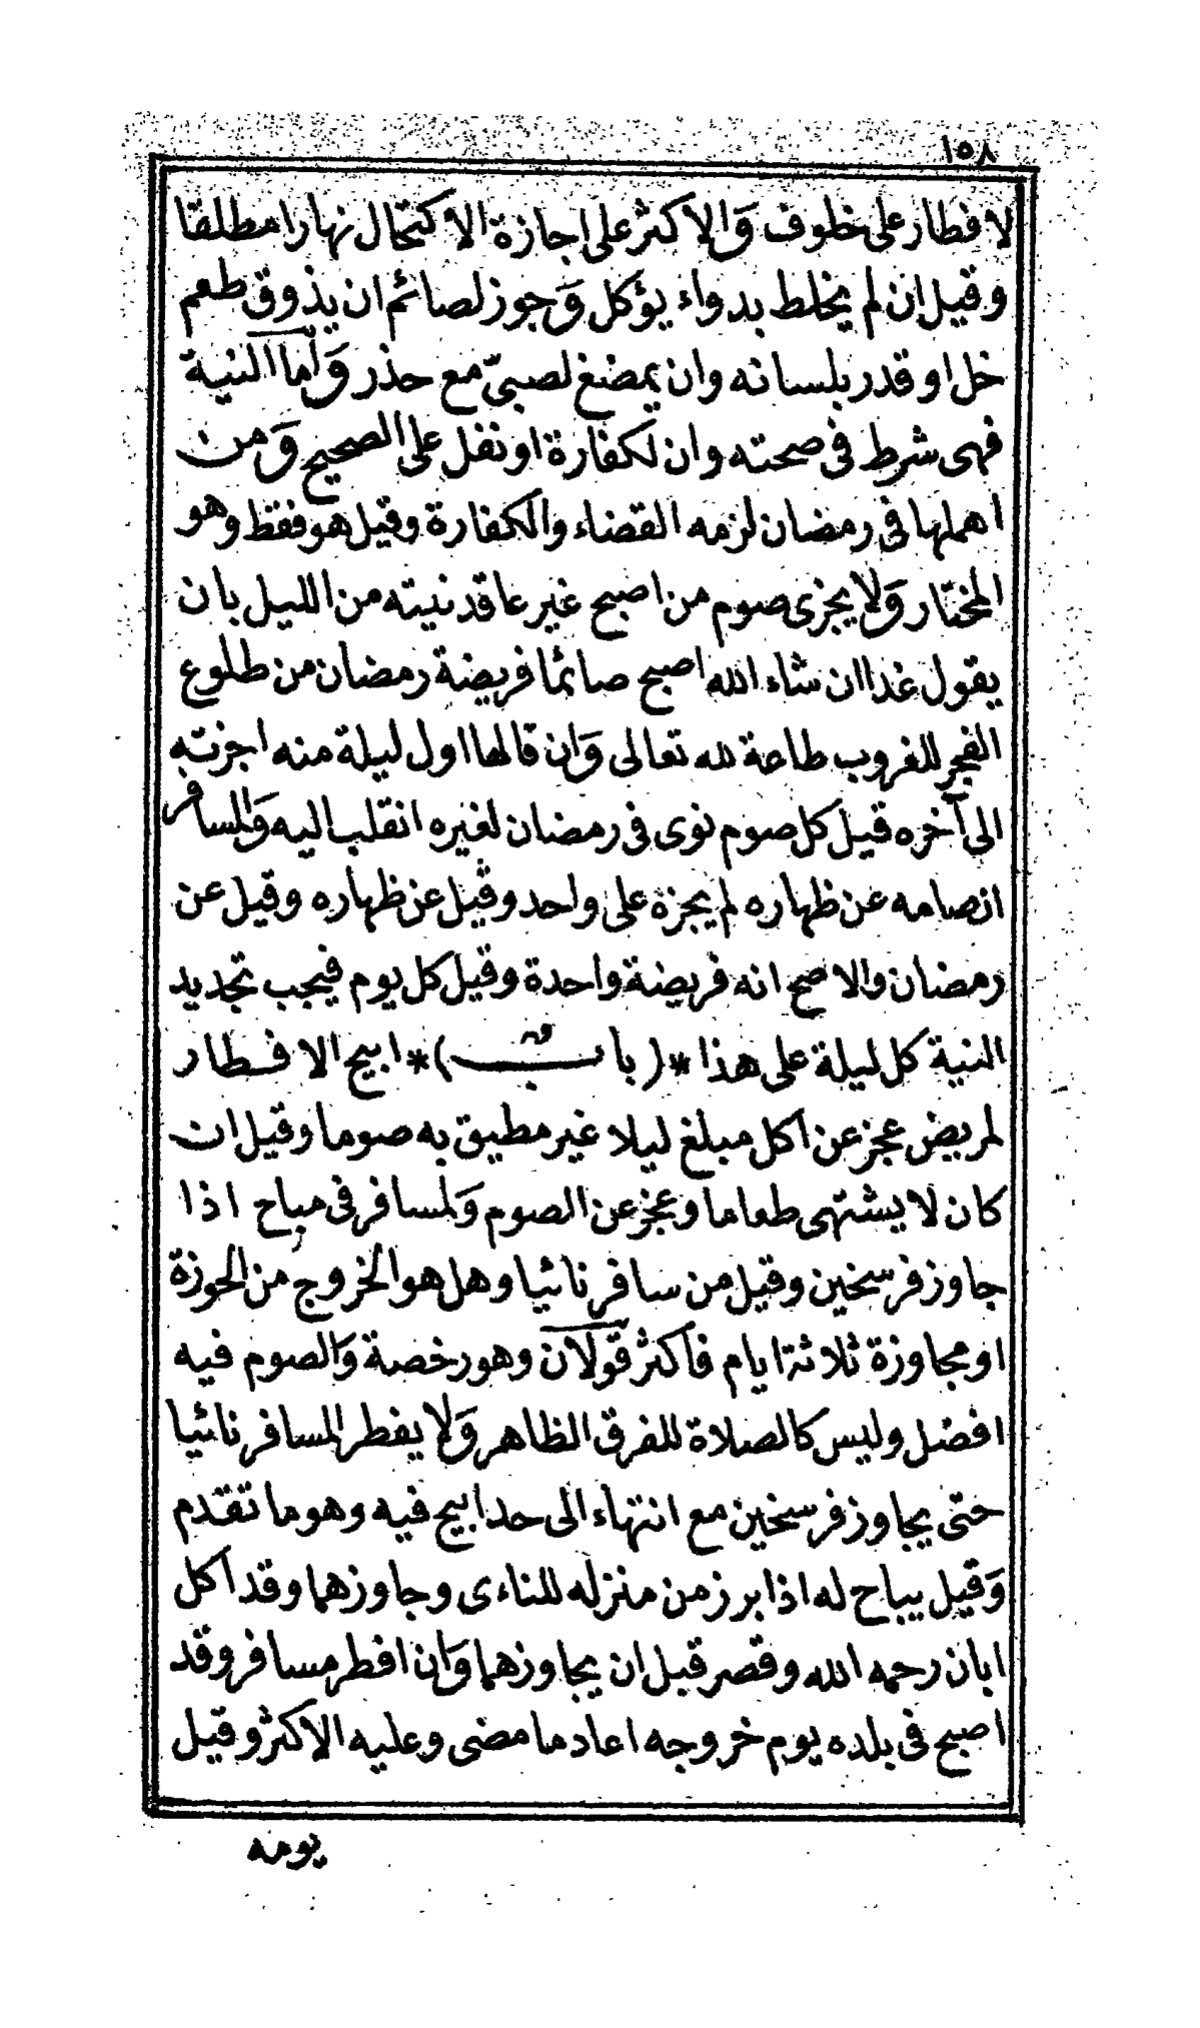 ١٥٨
لافطار على خلوف وَالاكثر على اجازة الاكتحال نهارا مطلقا
وقيل ان لم يخلط بدواء يؤكل وَجوز لصائم ان يذوق طعم
خل او قدر بلسانه وان يمضغ لصبيّ مع حذر وَأما النية
فهى شرط فى صحته وان لكفارة او نفل على الصحيح وَمن
اهملها فى رمضان لزمه القضاء والكفارة وقيل هو فقط وهو
المختار وَلا يجزى صوم من اصبح غير عاقد نيته من الليل بان
يقول غدا ان شاء الله اصبح صائما فريضة رمضان من طلوع
الفجر للغروب طاعة لله تعالى وَان قالها اول ليلة منه اجزته
الى آخره قيل كل صوم نوى فى رمضان لغيره انقلب اليه وَالمسافر
ان صامه عن ظهاره لم يجزه على واحد وقيل عن ظهاره وقيل عن
رمضان والاصح انه فريضة واحدة وقيل كل يوم فيجب تجديد
النية كل ليلة على هذا *(باب)* ابيح الافطار
لمريض عجز عن اكل مبلغ ليلا غير مطيق به صوما وقيل ان
كان لا يشتهى طعاما وعجز عن الصوم وَلمسافر فى مباح اذا
جاوز فرسخين وقيل من سافر نائيا وهل هو الخروج من الحوزة
او مجاوزة ثلاثة ايام فأكثر قولان وهو رخصة وَالصوم فيه
افضل وليس كالصلاة للفرق الظاهر وَلا يفطر المسافر نائيا
حتى يجاوز فرسخين مع انتهاء الى حد ابيح فيه وهو ما تقدم
وَقيل يباح له اذا برز من منزله للناءى وجاوزهما وقد اكل
ابان رحمه الله وقصر قبل ان يجاوزهما وَان افطر مسافر وقد
اصبح فى بلده يوم خروجه اعاد ما مضى وعليه الاكثر وقيل
يومه